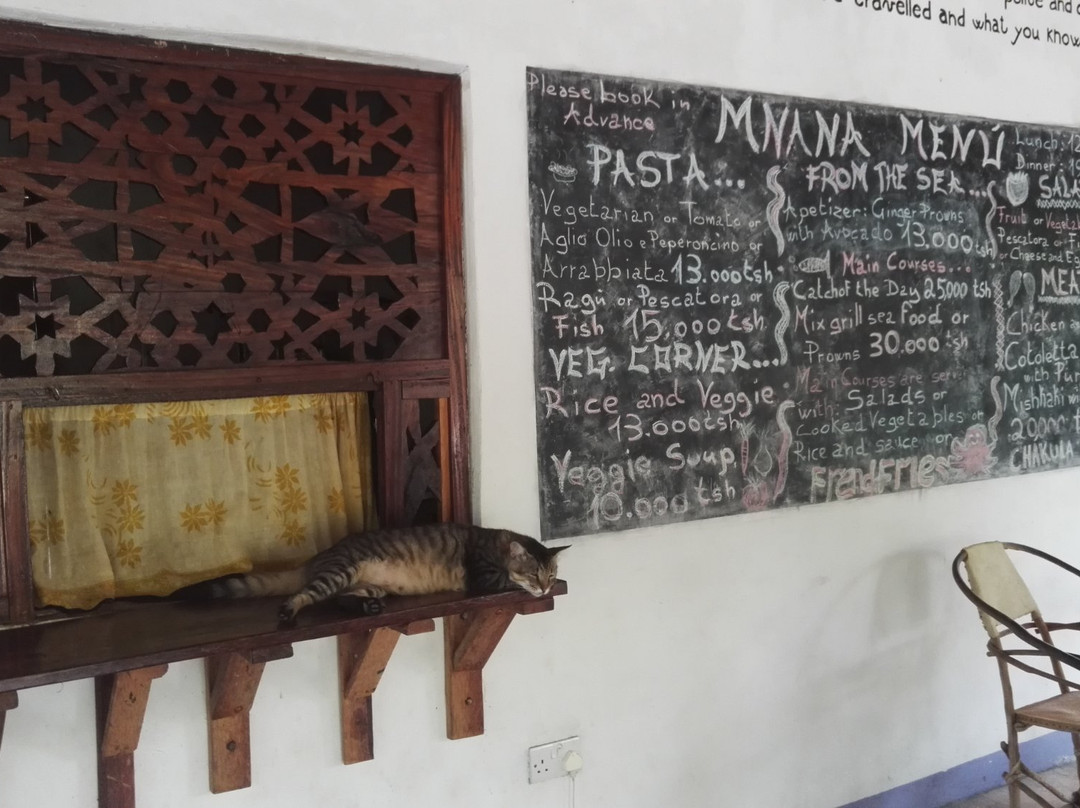 polite and
travelled and what you know
Please book in
Advance
MNANA MENÚ
PASTA...
Vegetarian or Tomato or
Aglio Olio e Peperoncino or
Arrabbiata 13.000tsh
Ragù or Pescatora or
Fish 15,000 tsh.
VEG. CORNER...
Rice and Veggie
13.000tsh
Veggie Sup
10.000 tsh
FROM THE SEA...
Apetizer: Ginger Prowns
with Avocado 13,000 tsh
Main Courses...
Catch of the Day 25,000 tsh
Mix grill sea food or
Prowns 30.000 tsh
Main Courses are
with: Salads or
Cooked Vegetables or
Rice and sauce or
Fried Fries
Lunch: 12
Dinner:
SALA
Fruit or Vegetab
Pescatora or
or Cheese and
MEA
Chicken
Cotoletta
with
Mishkaki
20000
CHAKULA